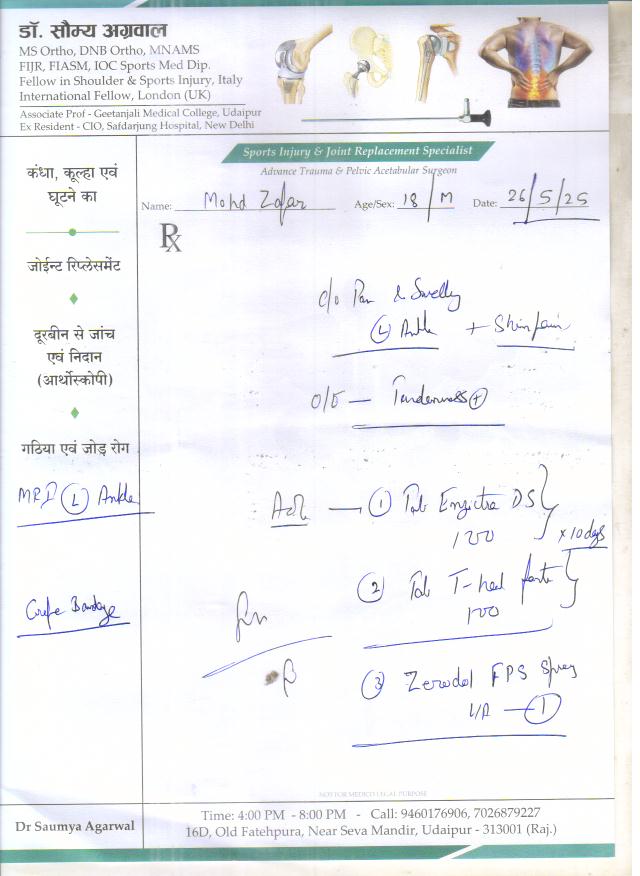 डॉ. सौम्य अग्रवाल
MS Ortho, DNB Ortho, MNAMS
FIJR, FIASM, IOC Sports Med Dip.
Fellow in Shoulder & Sports Injury, Italy
International Fellow, London (UK)
Associate Prof - Geetanjali Medical College, Udaipur
Ex Resident - CIO, Safdarjung Hospital, New Delhi
Sports Injury & Joint Replacement Specialist
Advance Trauma & Pelvic Acetabular Surgeon
Name: Mohd Zafar Age/Sex: 18/M Date: 26/5/25
Rx
कंधा, कूल्हा एवं
घूटने का
जोईन्ट रिप्लेसमेंट
दूरबीन से जांच
एवं निदान
(आर्थोस्कोपी)
गठिया एवं जोड़ रोग
c/o Pain & Swelling
(L) Ankle + Shin pain
O/E — Tenderness (+)
MRI (L) Ankle
Crepe Bandage
Adv — (1) Tab DS
x 10 days
(2) Tab T-heal forte
(3) Zerodol FPS Spray
L/A — (1)
NOT FOR MEDICO LEGAL PURPOSE
Dr Saumya Agarwal
Time: 4:00 PM - 8:00 PM - Call: 9460176906, 7026879227
16D, Old Fatehpura, Near Seva Mandir, Udaipur - 313001 (Raj.)